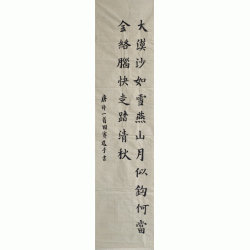 大漠沙如雪燕山月似鈎何當
金絡腦快走踏清秋
唐詩一首